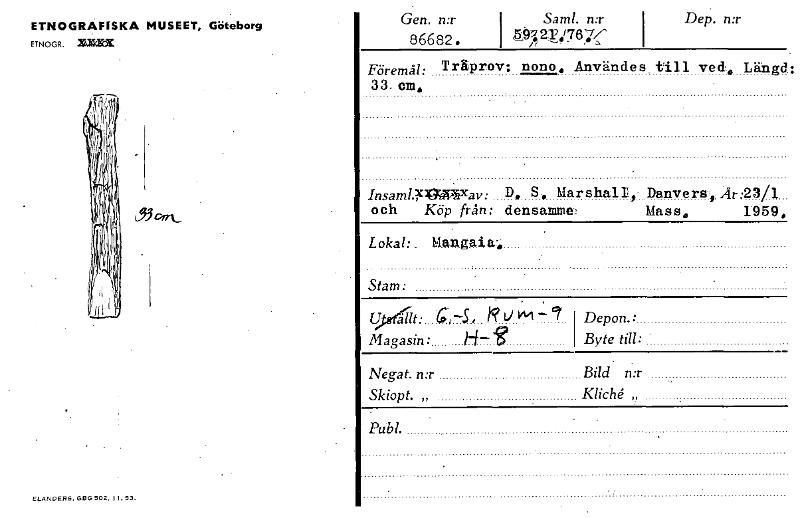 ETNOGRAFISKA MUSEET, Göteborg
ETNOGR.
33 cm
ELANDERS, GBG 502, 11. 53.
Gen. n:r Saml. n:r Dep. n:r
86682.
Föremål: Träprov: nono. Användes till ved. Längd:
33 cm.
Insaml. av: D. S. Marshall, Danvers, År: 23/1
och Köp från: densamme Mass. 1959.
Lokal: Mangaia.
Stam:
Utställt: G.-S. RUM-9 Depon.:
Magasin: H-8 Byte till:
Negat. n:r Bild n:r
Skiopt. „ Kliché „
Publ.